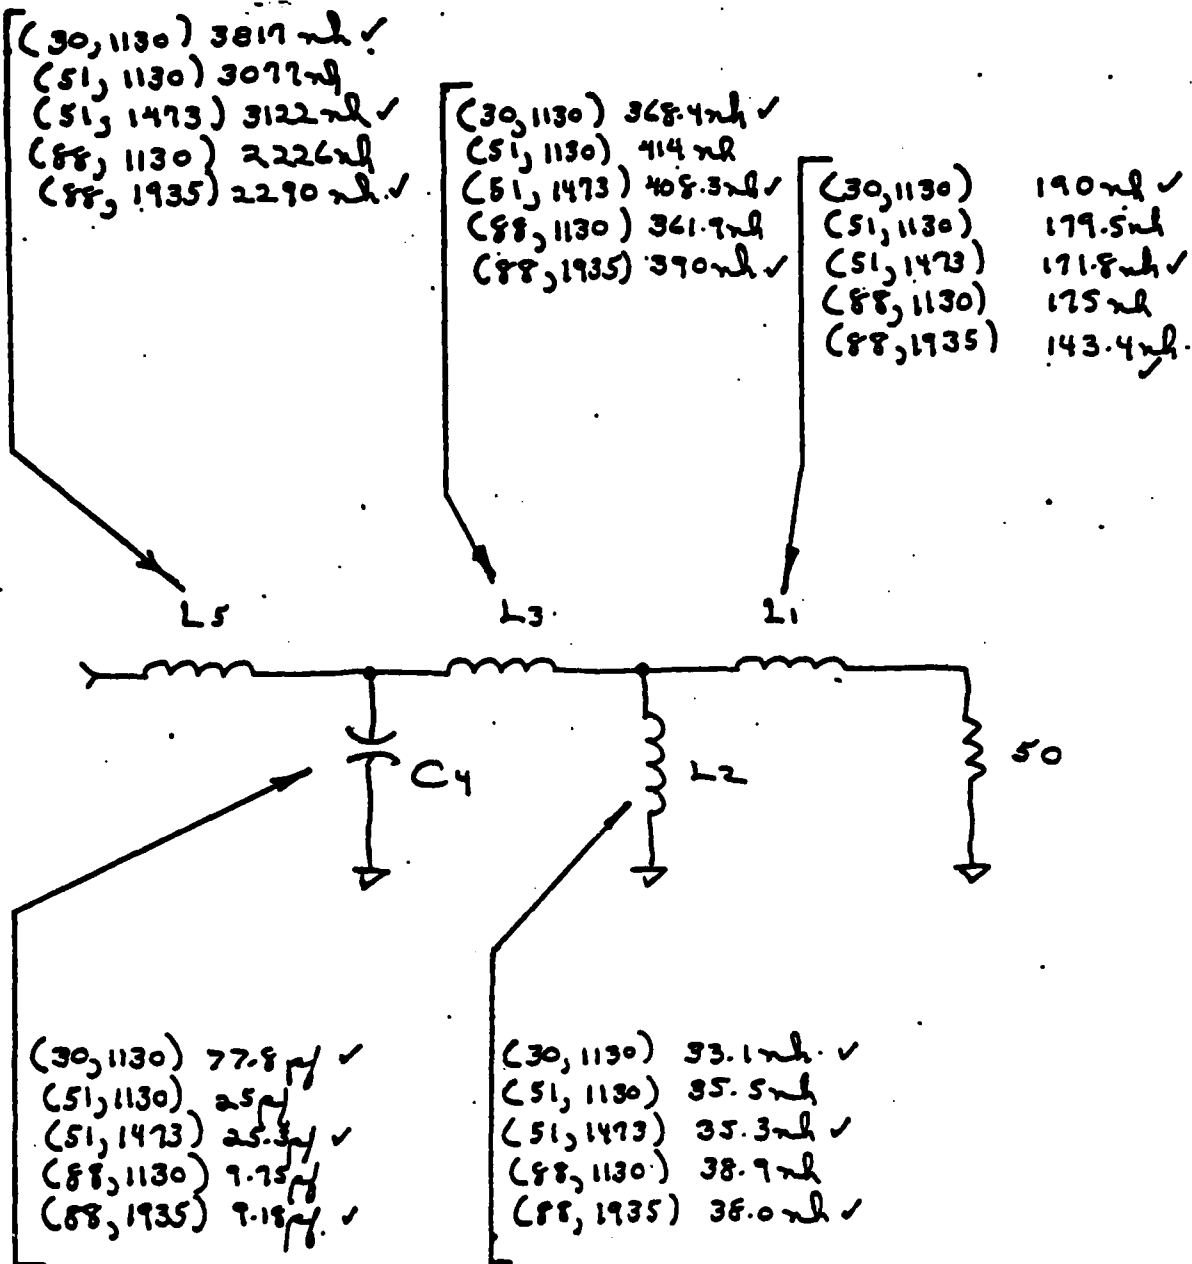 (30, 1130) 3817 nh ✓
(51, 1130) 3077 nh
(51, 1473) 3122 nh ✓
(88, 1130) 2226 nh
(88, 1935) 2290 nh ✓
(30, 1130) 368.4 nh ✓
(51, 1130) 414 nh
(51, 1473) 408.3 nh ✓
(88, 1130) 361.9 nh
(88, 1935) 390 nh ✓
(30, 1130) 190 nh ✓
(51, 1130) 179.5 nh
(51, 1473) 171.8 nh ✓
(88, 1130) 175 nh
(88, 1935) 143.4 nh ✓
L5
L3
L1
C4
L2
50
(30, 1130) 77.8 pf ✓
(51, 1130) 25 pf
(51, 1473) 25.3 pf ✓
(88, 1130) 9.75 pf
(88, 1935) 9.18 pf ✓
(30, 1130) 33.1 nh ✓
(51, 1130) 35.5 nh
(51, 1473) 35.3 nh ✓
(88, 1130) 38.9 nh
(88, 1935) 38.0 nh ✓